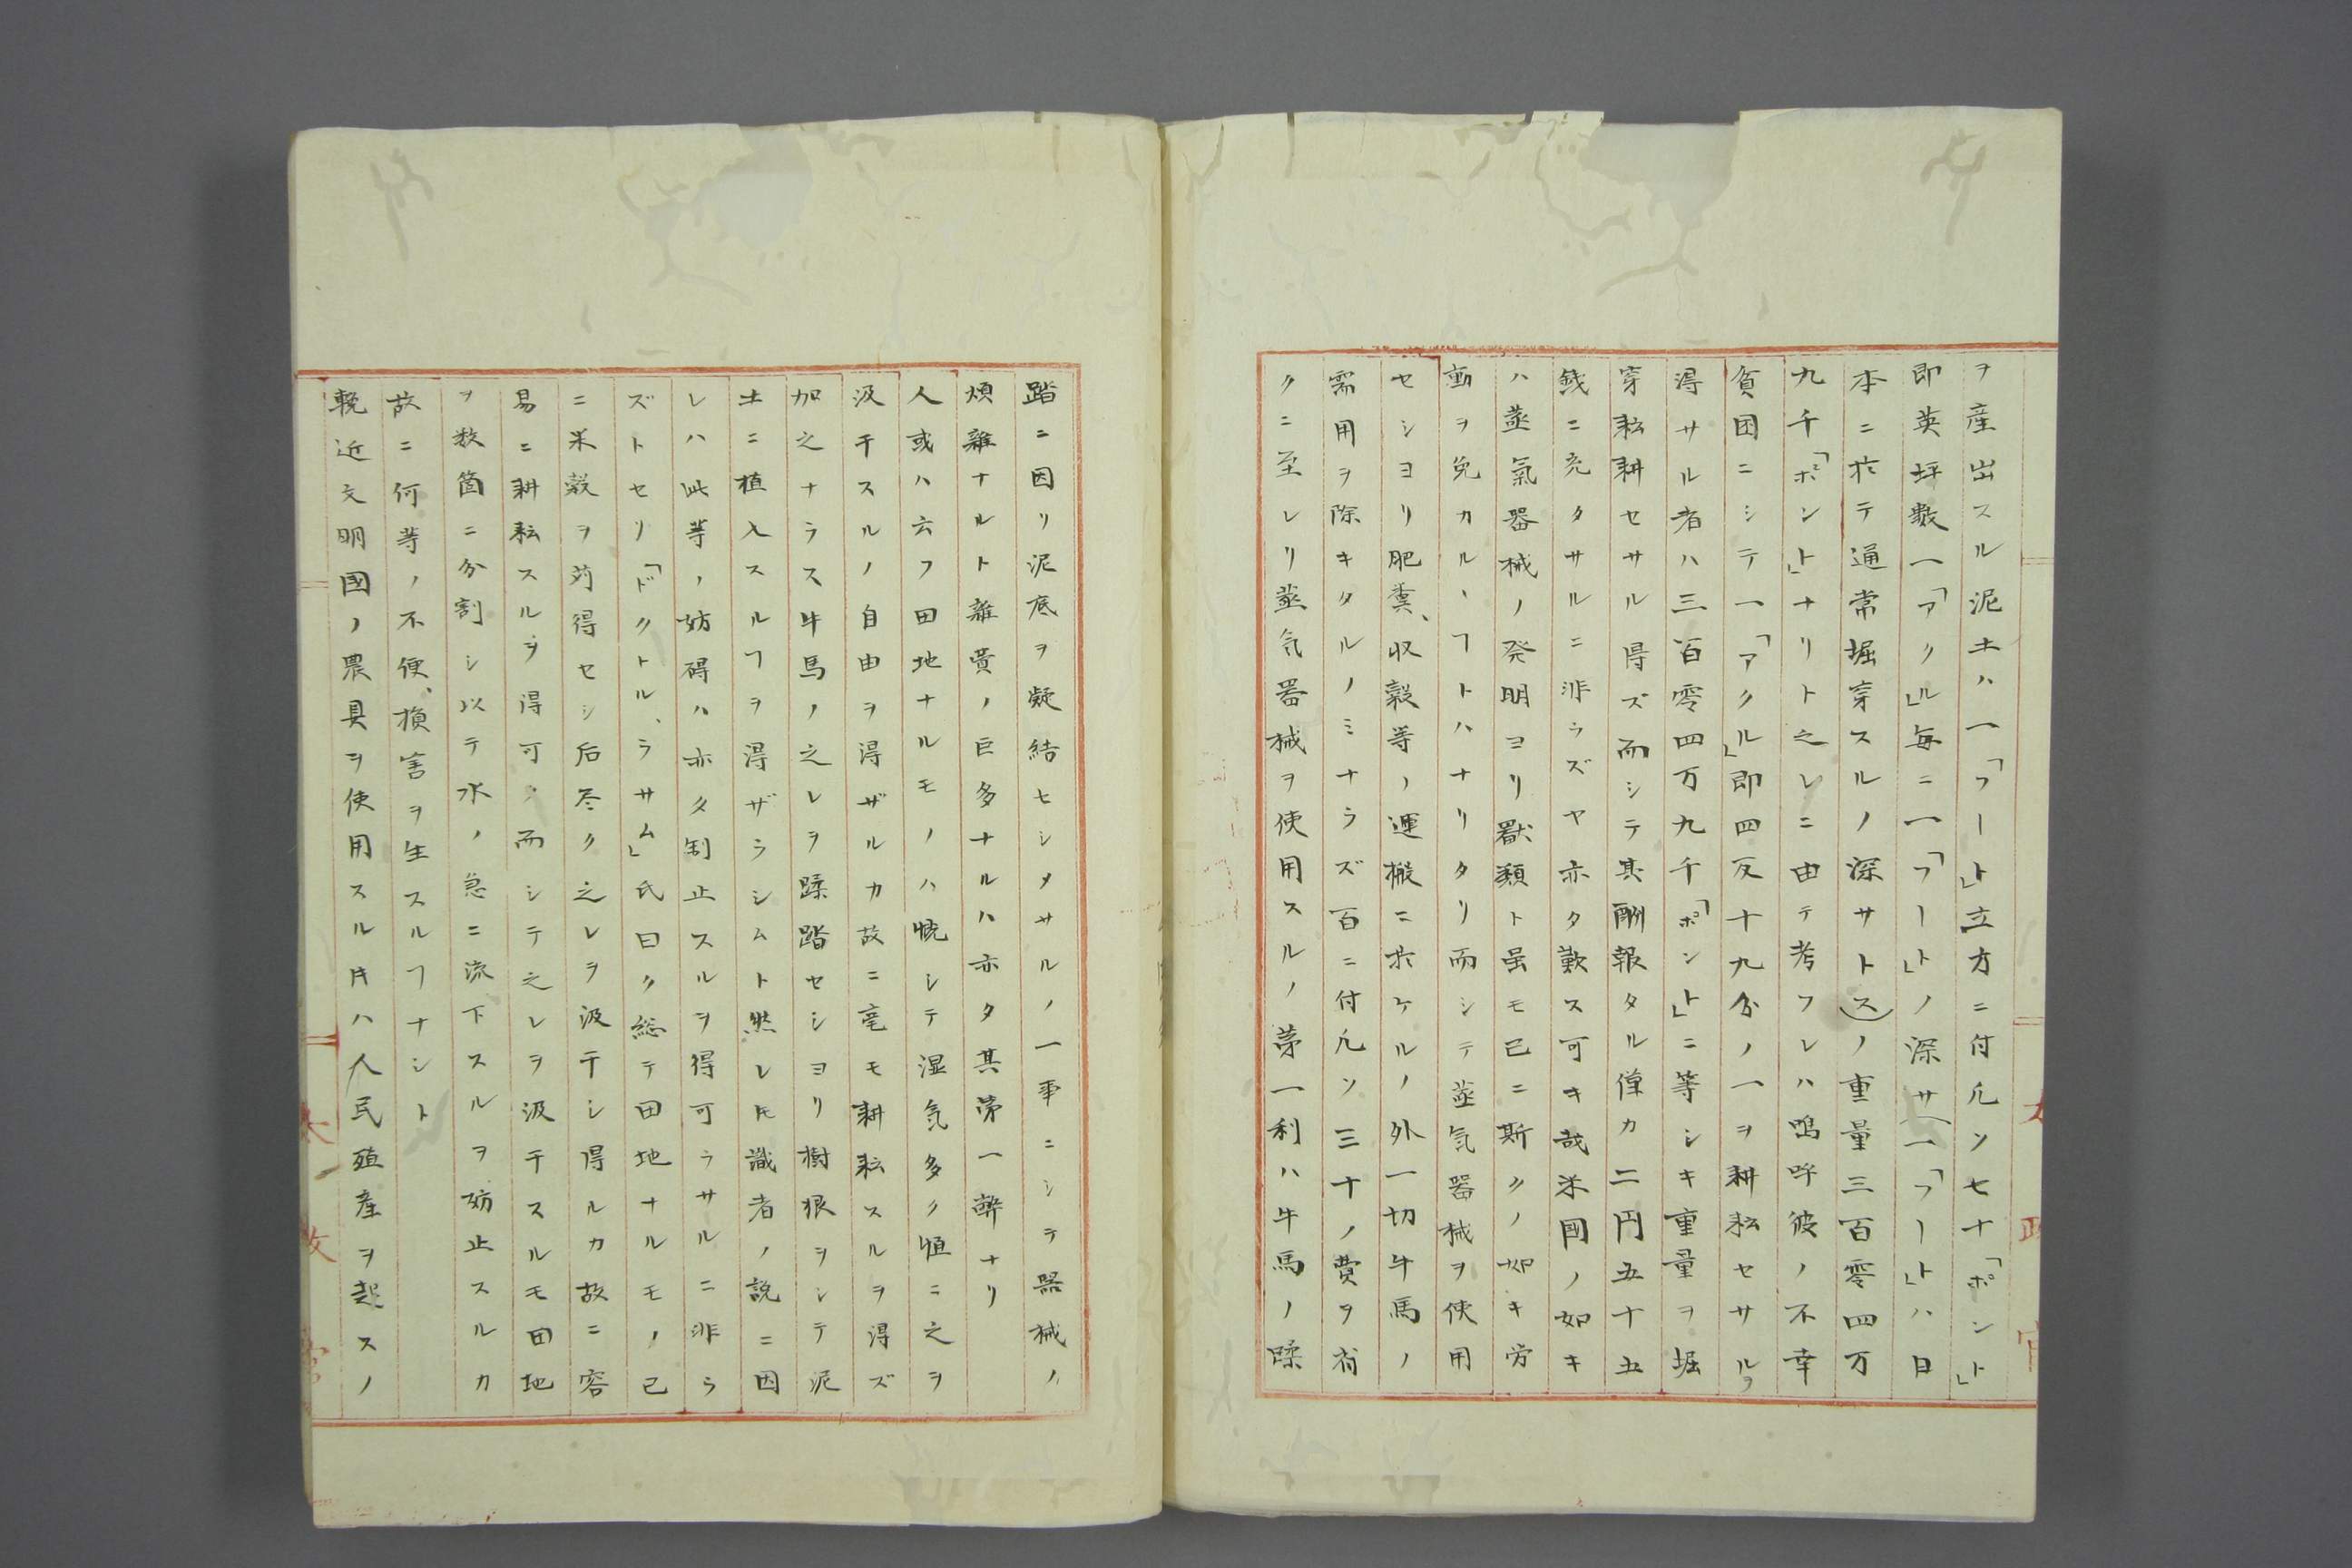 ヲ産出スル泥土ハ一「フート」立方ニ付凡ソ七十「ポント」
即英坪数一「アクル」毎ニ一「フート」ノ深サ(一「フート」ハ日
本ニ於テ通常堀穿スルノ深サトス)ノ重量三百零四万
九千「ポント」ナリト之レニ由テ考フレハ嗚呼彼ノ不幸
貧困ニシテ一「アクル」即四反十九分ノ一ヲ耕耘セサルヲ
得サル者ハ三百零四万九千「ポント」ニ等シキ重量ヲ堀
穿耘耕セサル得ズ而シテ其酬報タル僅カ二円五十五
銭ニ充タサルニ非ラズヤ亦タ歎ス可キ哉米國ノ如キ
ハ蒸氣器械ノ発明ヨリ獣類ト虽モ已ニ斯クノ如キ労
動ヲ免カルヽヿトハナリタリ而シテ蒸気器械ヲ使用
セシヨリ肥糞、収穀等ノ運搬ニ於ケルノ外一切牛馬ノ
需用ヲ除キタルノミナラズ百ニ付凡ソ三十ノ費ヲ省
クニ至レリ蒸気器械ヲ使用スルノ第一利ハ牛馬ノ蹂
踏ニ因リ泥底ヲ凝結セシメサルノ一事ニシテ器械ノ
煩雑ナルト雑費ノ巨多ナルハ亦タ其第一弊ナリ
人或ハ云フ田地ナルモノハ慨シテ湿気多ク恒ニ之ヲ
汲干スルノ自由ヲ得ザルカ故ニ毫モ耕耘スルヲ得ズ
加之ナラス牛馬ノ之レヲ蹂踏セシヨリ樹根ヲシテ泥
土ニ植入スルヿヲ得ザラシムト然レ𪜈識者ノ説ニ因
レハ此等ノ妨碍ハ亦タ制止スルヲ得可ラサルニ非ラ
ズトセリ「ドクトル、ラサム」氏曰ク総テ田地ナルモノ已
ニ米穀ヲ苅得セシ后尽ク之レヲ汲干シ得ルカ故ニ容
易ニ耕耘スルヲ得可ク而シテ之レヲ汲干スルモ田地
ヲ数箇ニ分割シ以テ水ノ急ニ流下スルヲ妨止スルカ
故ニ何等ノ不便、損害ヲ生スルヿナシト
輓近文明國ノ農具ヲ使用スル片ハ人民殖産ヲ起スノ
太政官
太政官